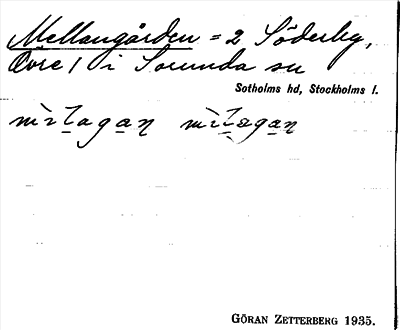 Mellangården = 2 Söderby,
Övre / i Sorunda sn
Sotholms hd, Stockholms l.
GÖRAN ZETTERBERG 1935.